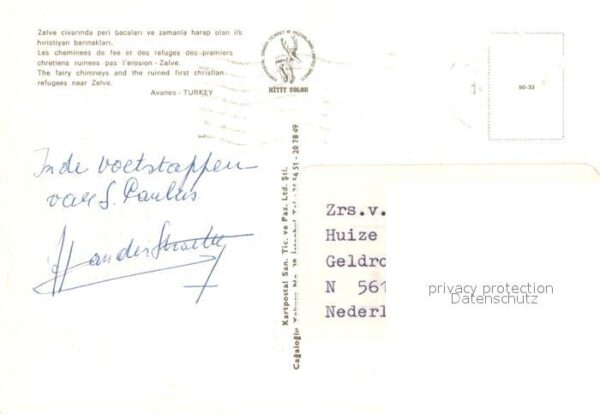 Zelve civarında peri bacaları ve zamanla harap olan ilk
hıristiyan barınakları.
Les cheminees de fee et des refuges des premiers
chretiens ruinees pas l'erosion - Zelve.
The fairy chimneys and the ruined first christian
refugees near Zelve.
Avanos - TURKEY
HİTİT COLOR
90-33
In de voetstappen
van S. Paulus
Kartpostal San. Tic. ve Paz. Ltd. Şti.
Cağaloğlu
20 78 49
Zrs.v.
Huize
Geldro
N 561
Nederl
privacy protection
Datenschutz